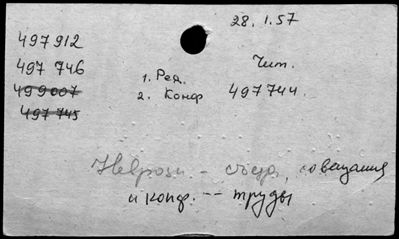 28. 1. 57
497912
497 746
499007
497 745
Чит.
1. Ред.
2. Конф
497744.
Неврозы - съезд, совещания
и конф. -- труды